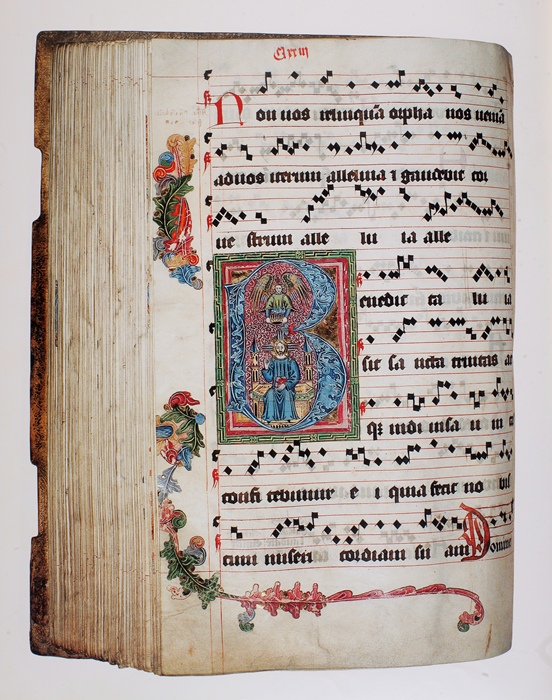 Cxxiii
Non uos relinquā orpha nos ueniā
aduos iterum alleluia ⁊ gaudebit cor
ue strum alle lu ia alle lu ia
enedic ta
sit sa ncta trinitas
indi uisa u ni
confi tebimur e i quia fecit no bis
cum miseri cordiam su am Domine